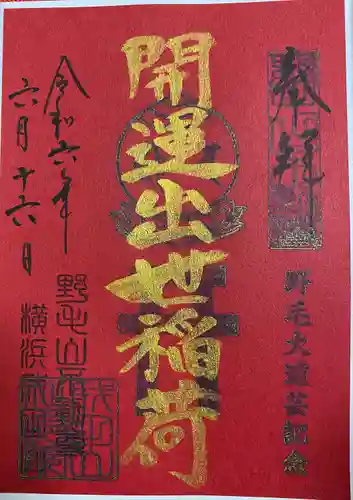 奉拝
野毛大道芸記念
開運出世稲荷
令和六年
六月十六日
野毛山不動尊
横浜成田山